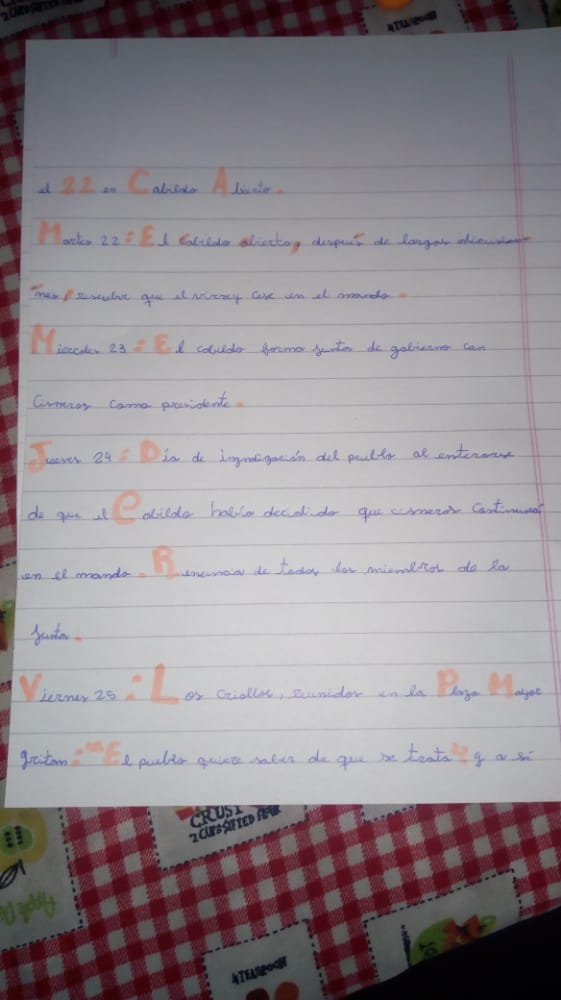 CRUST
2 CLASSIFIED
ATEASPOON
el 22 en Cabildo Abierto.
Martes 22: El Cabildo abierto, después de largas discusio-
nes, resuelve que el virrey cese en el mando.
Miercoles 23: El cabildo forma junta de gobierno con
Cisneros como presidente.
Jueves 24: Día de ingndigación del pueblo al enterarse
de que el Cabildo había decidido que cisneros continuaá
en el mando. Renuncia de todos los miembros de la
Junta.
Viernes 25: Los criollos, reunidos en la Plaza Mayor
gritam: "El pueblo quiere saber de que se trata" y a sí
CRUST
2 CLASSIFIED
Apple
ATEASPOON